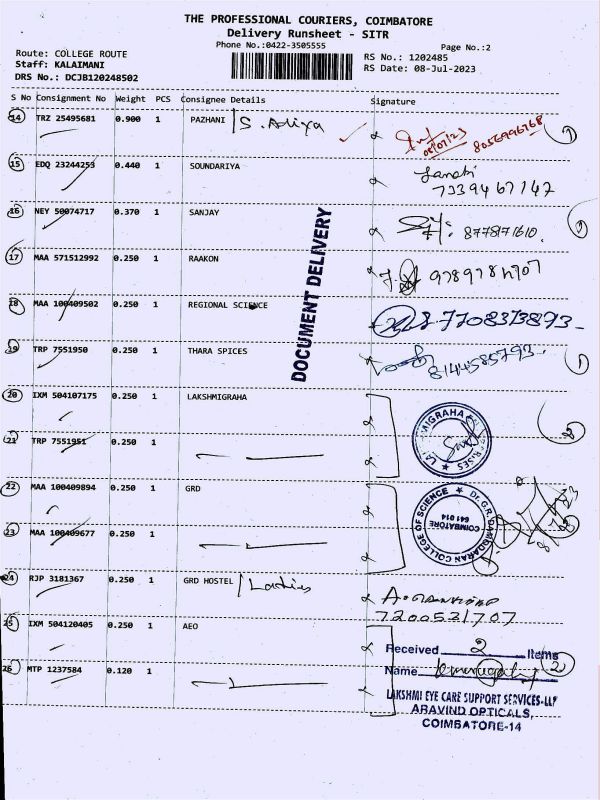 THE PROFESSIONAL COURIERS, COIMBATORE
Delivery Runsheet - SITR
Phone No.:0422-3505555
Page No.:2
Route: COLLEGE ROUTE
Staff: KALAIMANI
DRS No.: DCJB120248502
RS No.: 1202485
RS Date: 08-Jul-2023
S No Consignment No Weight PCS Consignee Details Signature
14 TRZ 25495681 0.900 1 PAZHANI 8056996768
08/07/23
15 EDQ 23244253 0.440 1 SOUNDARIYA
7339467147
16 NEY 50074717 0.370 1 SANJAY 8778171610
17 MAA 571512992 0.250 1 RAAKON
18 MAA 100409502 0.250 1 REGIONAL SCIENCE 7708373893
19 TRP 7551950 0.250 1 THARA SPICES 8144585793
DOCUMENT DELIVERY
20 IXM 504107175 0.250 1 LAKSHMIGRAHA
21 TRP 7551951 0.250 1
22 MAA 100409894 0.250 1 GRD
Dr. G.R. DAMODARAN COLLEGE OF SCIENCE
COIMBATORE
641 014
23 MAA 100409677 0.250 1
24 RJP 3181367 0.250 1 GRD HOSTEL Ladies
7200521707
25 IXM 504120405 0.250 1 AEO
Received 2 Items 2
Name
26 MTP 1237584 0.120 1
LAKSHMI EYE CARE SUPPORT SERVICES-LLP
ARAVIND OPTICALS,
COIMBATORE-14